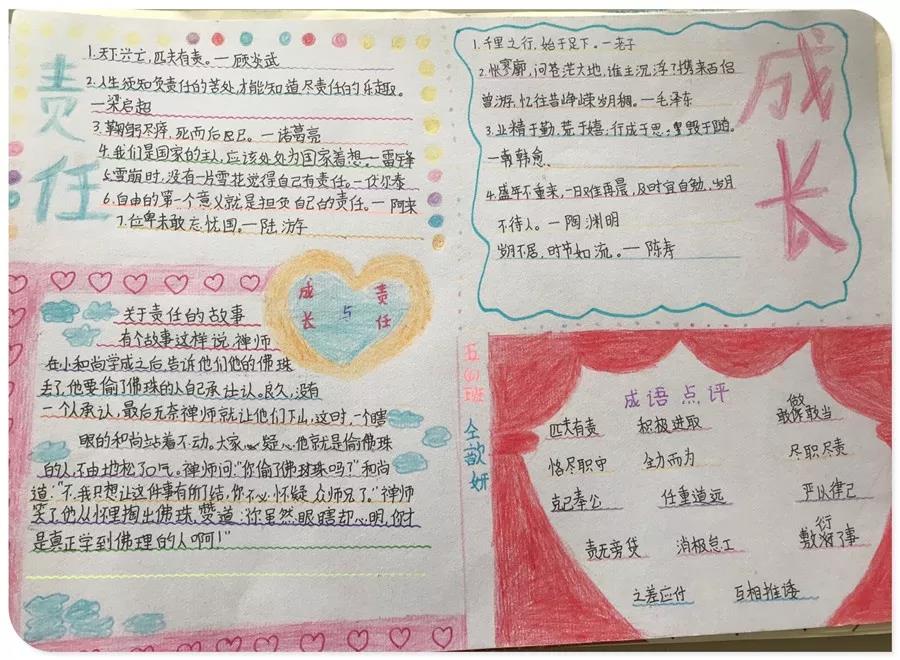 责任
1.天下兴亡,匹夫有责。一顾炎武
2.人生须知负责任的苦处,才能知道尽责任的乐趣。
一梁启超
3.鞠躬尽瘁,死而后已。一诸葛亮
4.我们是国家的主人,应该处处为国家着想一雷锋
5.雪崩时,没有一片雪花觉得自己有责任。一伏尔泰
6.自由的第一个意义就是担负自己的责任。一阿来
7.位卑未敢忘忧国。一陆游
成长
1.千里之行,始于足下。一老子
2.怅寥廓,问苍茫大地,谁主沉浮了携来百侣
曾游,忆往昔峥嵘岁月稠。一毛泽东
3.业精于勤,荒于嬉;行成于思,毁于随。
一韩愈、
4.盛年不重来,一日难再晨,及时宜自勉,岁月
不待人。一陶渊明
岁月不居,时节如流。一陈寿
成长
与
责任
关于责任的故事
有个故事这样说,禅师
在小和尚学成之后,告诉他们他的佛珠
丢了,他要偷了佛珠的人自己承认。良久,没有
一个人承认,最后无奈禅师就让他们下山,这时,一个瞎
眼的和尚站着不动。大家心疑心他就是偷佛珠
的人,不由地松了口气。禅师问:“你偷了佛珠吗?”和尚
道:“不,我只想让这件事有所了结,你不必怀疑众师兄了。”禅师
笑了,他从怀里掏出佛珠,赞道:你虽然眼瞎却心明,你才
是真正学到佛理的人啊!”
五(1)班
仝歆妍
成语点评
匹夫有责 积极进取 敢做敢当
恪尽职守 全力而为 尽职尽责
克己奉公 任重道远 严以律己
责无旁贷 消极怠工 敷衍了事
之差应付 互相推诿